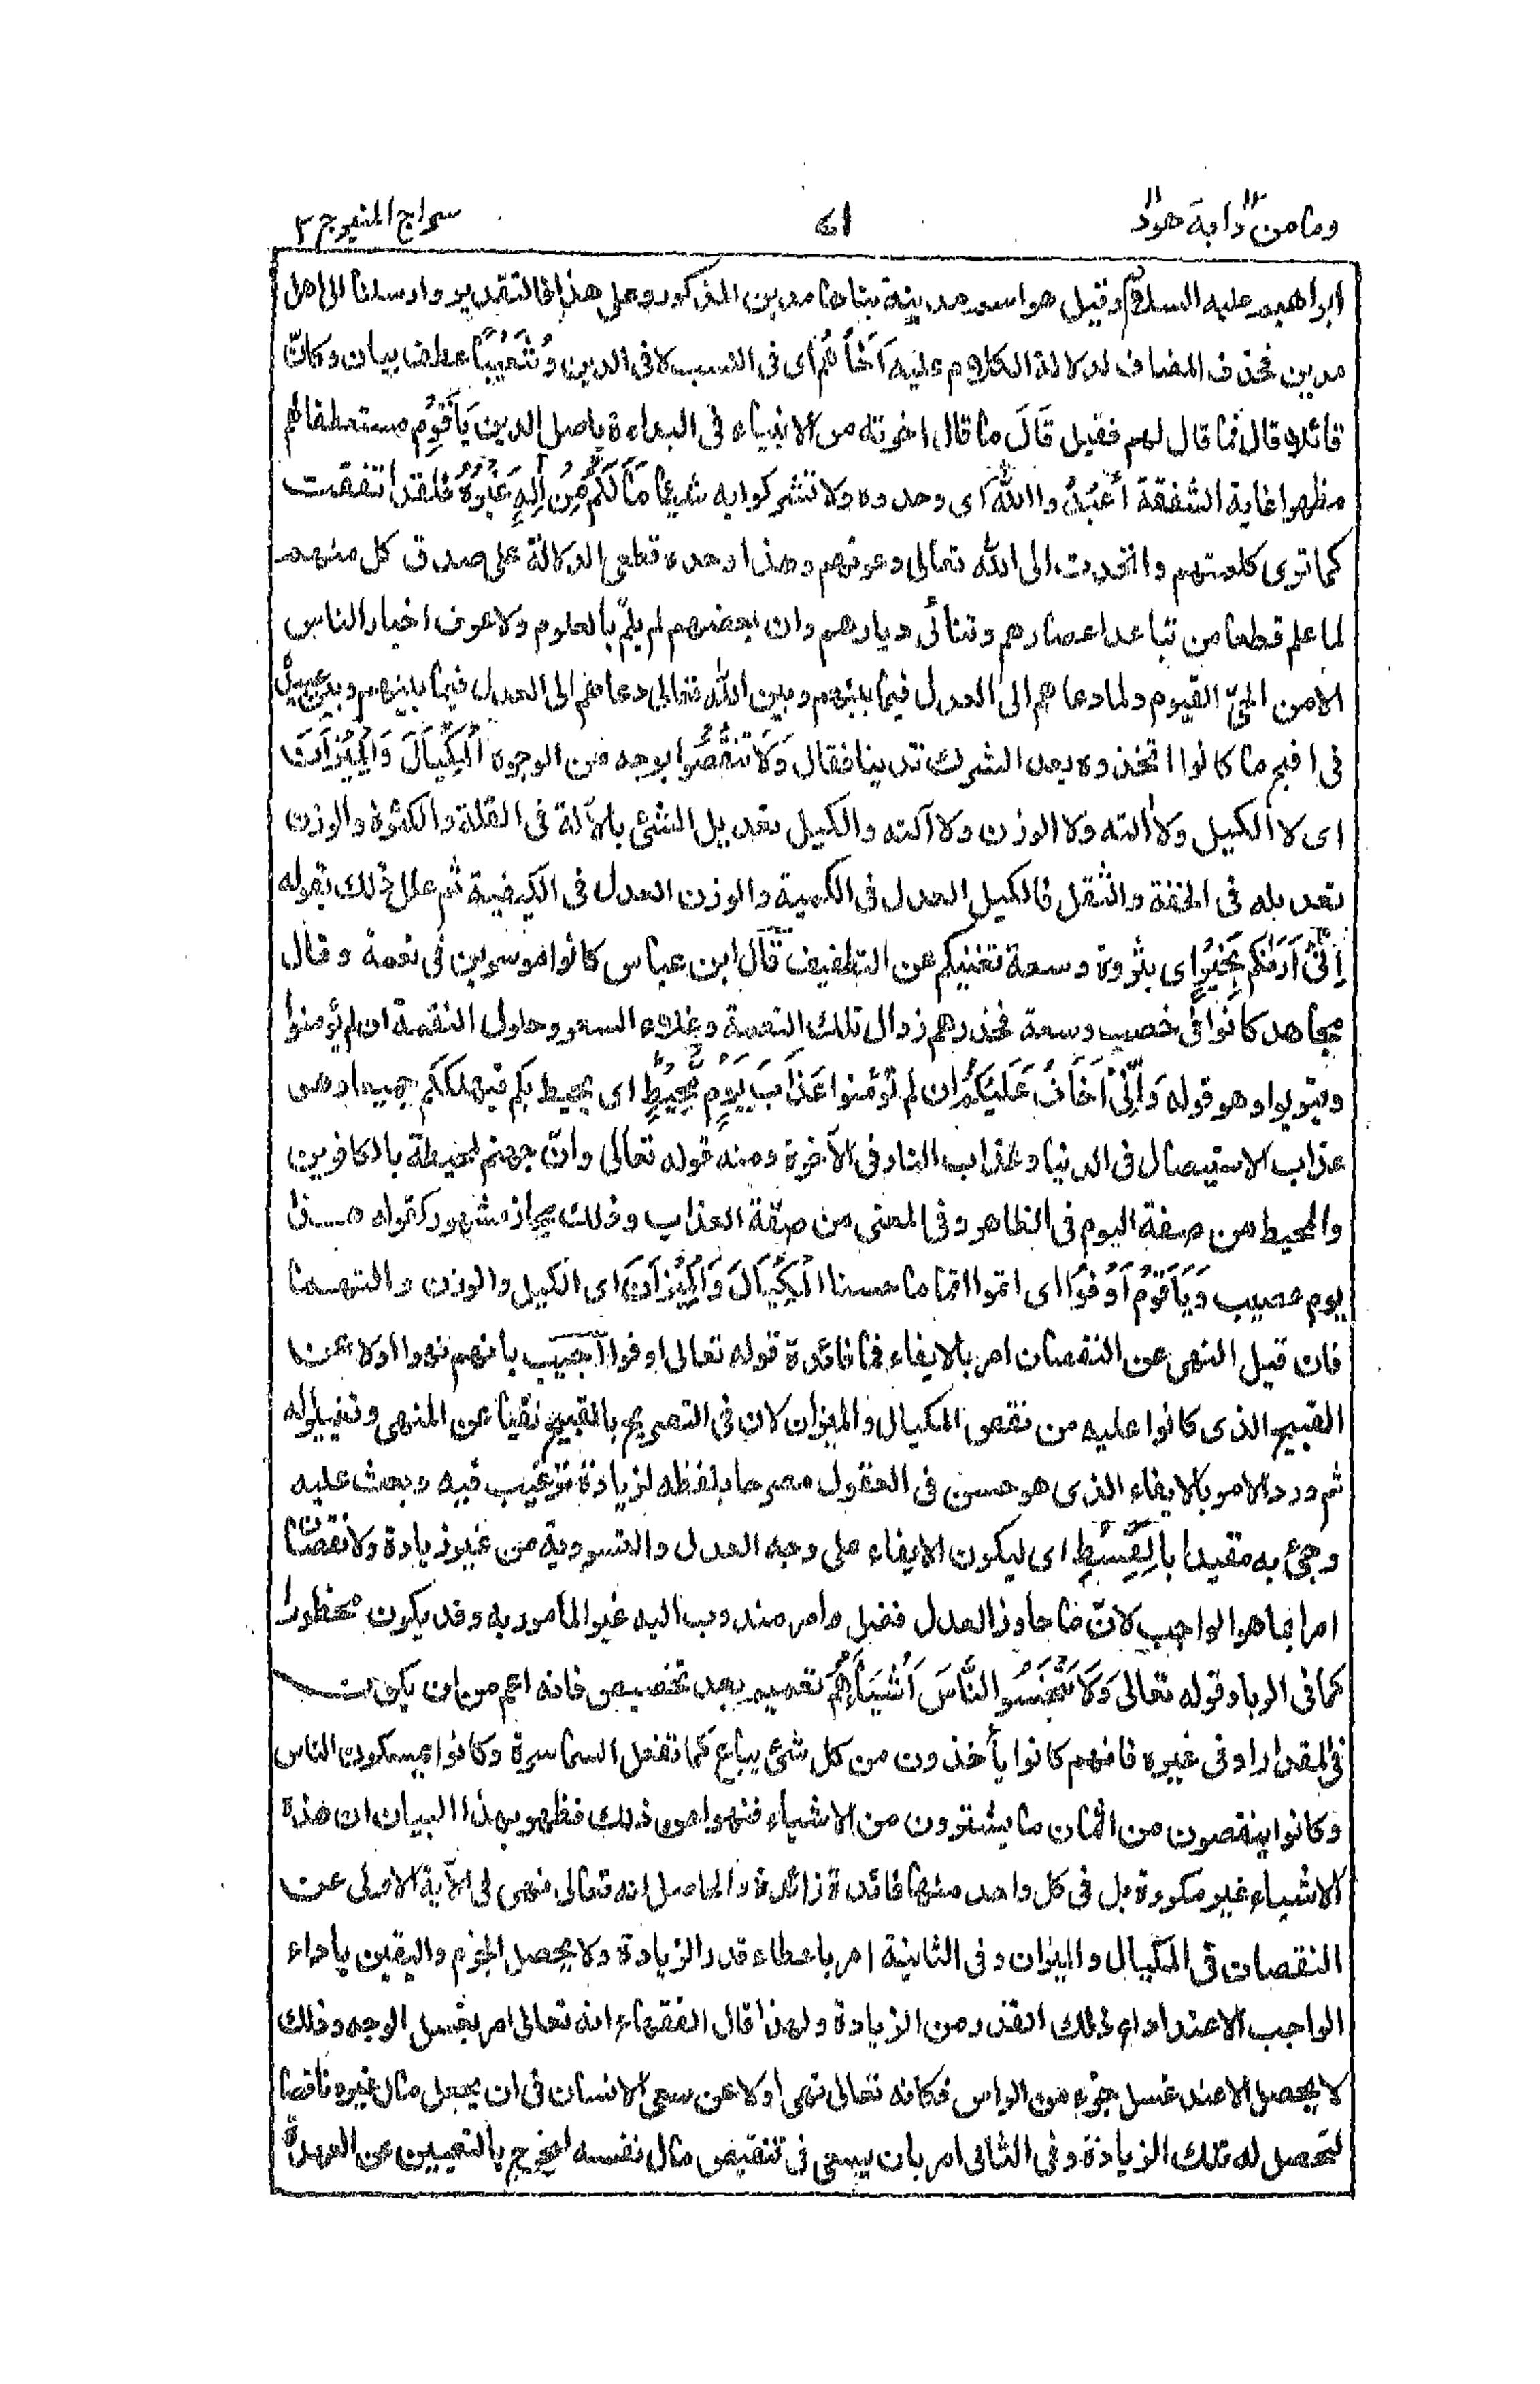 وما من دابة هود
٧١
سراج المنير ج ٢
ابراهيم عليه السلام وقيل هو اسم مدينة بناها مدين المذكور وعلى هذا فالتقدير وارسلنا الى اهل
مدين فحذف المضاف لدلالة الكلام عليه اَخَاهُمْ اى فى النسب لا فى الدين و شُعَيْبًا عطف بيان وكانّ
قائلا قال فما قال لهم فقيل قَالَ ما قال اخوته من الانبياء فى البداءة باصل الدين يَاقَوْمِ مستعطفا لهم
مظهرا غاية الشفقة اُعْبُدُوا اللهَ اى وحدوه ولا تشركوا به شيئا مَا لَكُمْ مِنْ اِلٰهٍ غَيْرُهُ فلقد اتفقت
كما ترى كلمتهم واتحدت الى الله تعالى دعوتهم وهذا وحده قطعى الدلالة على صدق كل منهم
لما علم قطعا من تباعد اعصارهم وتنائى ديارهم وان بعضهم لم يلمّ بالعلوم ولا عرف اخبار الناس
الا من الحىّ القيوم ولما دعاهم الى العدل فيما بينهم وبين الله تعالى دعاهم الى العدل فيما بينهم وبين عبيده
فى اقبح ما كانوا اتخذوه بعد الشرك تدينا فقال وَلَا تَنْقُصُوا بوجه من الوجوه الْمِكْيَالَ وَالْمِيْزَانَ
اى لا الكيل ولا آلته ولا الوزن ولا آلته والكيل تعديل الشئ بالآلة فى القلة والكثرة والوزن
تعديله فى الخفة والثقل فالكيل العدل فى الكمية والوزن العدل فى الكيفية ثم علل ذلك بقوله
اِنِّىْ اَرٰىكُمْ بِخَيْرٍ اى بثروة وسعة تغنيكم عن التطفيف قال ابن عباس كانوا موسرين فى نعمة وقال
مجاهد كانوا فى خصب وسعة فحذرهم زوال تلك النعمة وغلاء السعر وحلول النقمة ان لم يؤمنوا
ويتوبوا وهو قوله وَاِنِّىْ اَخَافُ عَلَيْكُمْ ان لم تؤمنوا عَذَابَ يَوْمٍ مُّحِيْطٍ اى يحيط بكم فيهلككم جميعا وهى
عذاب الاستيصال فى الدنيا وعذاب النار فى الآخرة ومنه قوله تعالى وانّ جهنم لمحيطة بالكافرين
والمحيط من صفة اليوم فى الظاهر وفى المعنى من صفة العذاب وذلك مجاز مشهور كقوله هـذا
يوم عصيب وَيَاقَوْمِ اَوْفُوا اى اتموا اتماما حسنا الْمِكْيَالَ وَالْمِيْزَانَ اى الكيل والوزن والتهما
فان قيل النهى عن النقصان امر بالايفاء فما فائدة قوله تعالى اوفوا اجيب بانهم نهوا اولا عن
القبيح الذى كانوا عليه من نقص المكيال والميزان لان فى التصريح بالقبيح نفيا عن المنهى وتغييرا له
ثم ورد الامر بالايفاء الذى هو حسن فى العقول مصرحا بلفظه لزيادة ترغيب فيه وبعث عليه
وجئ به مقيدا بِالْقِسْطِ اى ليكون الايفاء على وجه العدل والتسوية من غير زيادة ولا نقصان
امرا بما هو الواجب لانّ ما جاوز العدل فضل وامر مندوب اليه غير المأمور به وقد يكون محظورا
كما فى الربا وقوله تعالى وَلَا تَبْخَسُوا النَّاسَ اَشْيَآءَهُمْ تعميم بعد تخصيص فانه اعم من ان يكون
فى المقدار او فى غيره فانهم كانوا يأخذون من كل شئ يباع كما تفعل السماسرة وكانوا يمسكون الناس
وكانوا ينقصون من اثمان ما يشترون من الاشياء فنهوا عن ذلك فظهر بهذا البيان ان هذه
الاشياء غير مكررة بل فى كل واحد منها فائدة زائدة والحاصل انه تعالى نهى فى الآية الاولى عن
النقصان فى المكيال والميزان وفى الثانية امر باعطاء قدر الزيادة ولا يحصل الجزم واليقين باداء
الواجب الا عند اداء ذلك القدر من الزيادة ولهذا قال الفقهاء انه تعالى امر بغسل الوجه وذلك
لا يحصل الا عند غسل جزء من الراس فكانه تعالى نهى اولا عن سعى الانسان فى ان يجعل مال غيره ناقصا
لتحصل له تلك الزيادة وفى الثانى امر بان يسعى فى تنقيص مال نفسه ليخرج باليقين عن العهدة